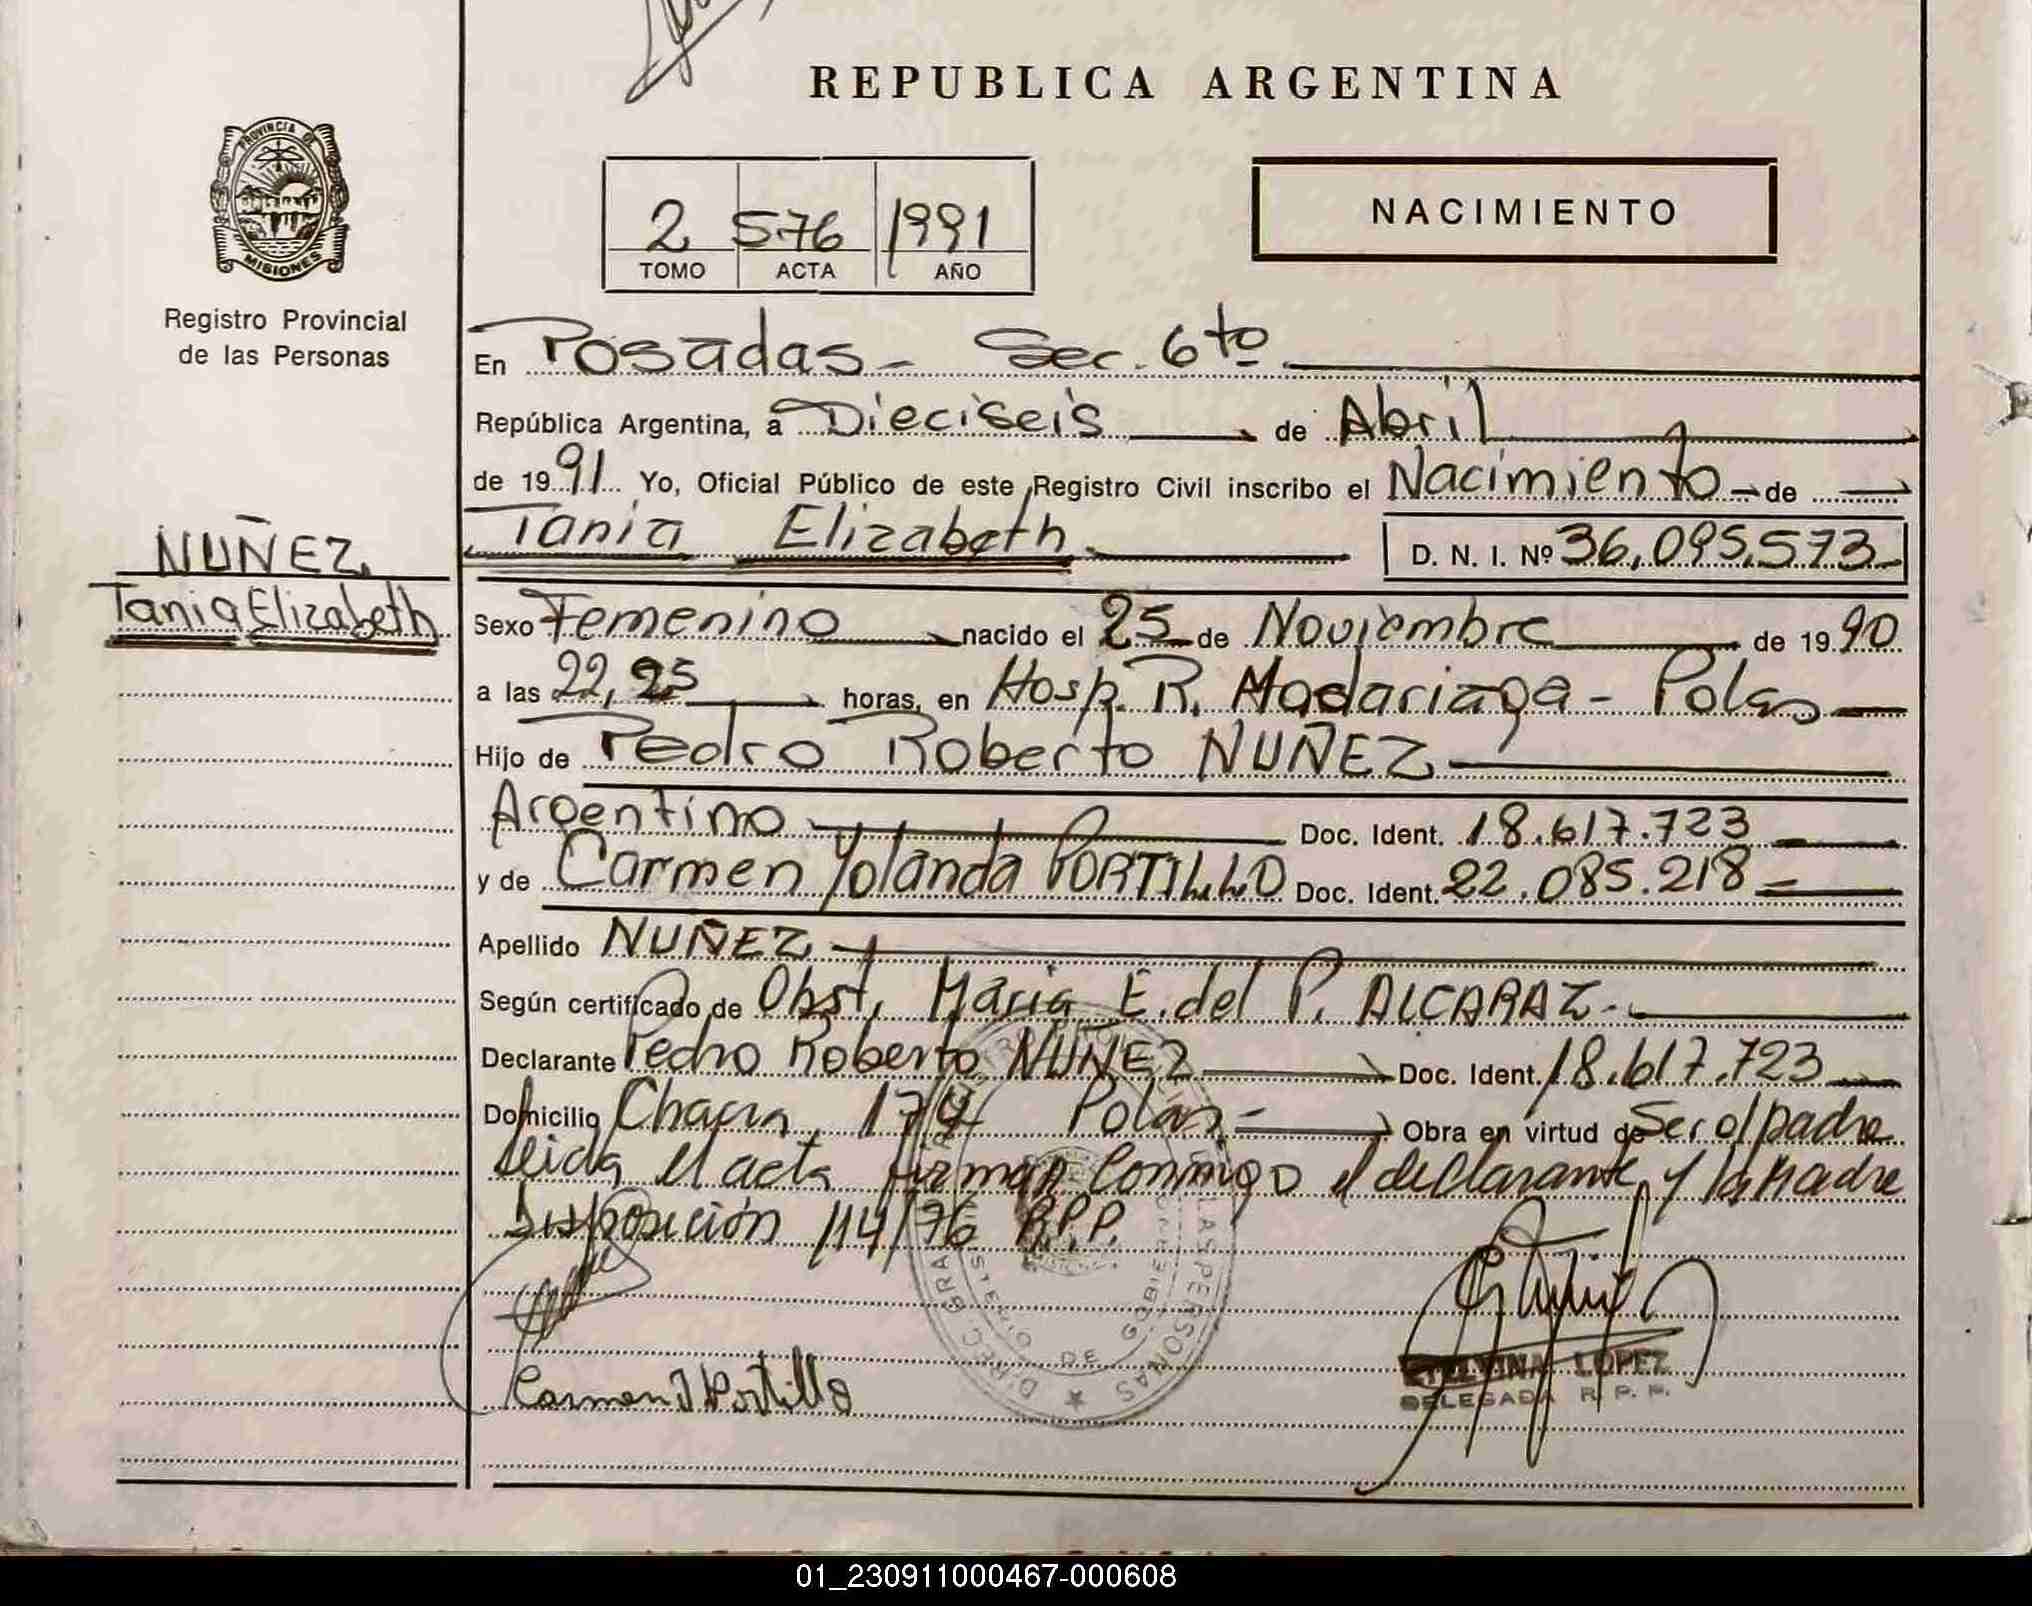 REPUBLICA ARGENTINA
PROVINCIA DE
MISIONES
Registro Provincial
de las Personas
2 576 1991
TOMO ACTA AÑO
NACIMIENTO
En Posadas - Sec. 6to
República Argentina, a Dieciseis de Abril
de 1991 Yo, Oficial Público de este Registro Civil inscribo el Nacimiento de
Tania Elizabeth D. N. I. Nº 36,095,573
NUÑEZ
Tania Elizabeth
Sexo Femenino nacido el 25 de Noviembre de 1990
a las 22,25 horas, en Hosp. R. Madariaga - Pdas
Hijo de Pedro Roberto NUÑEZ
Argentino Doc. Ident. 18.617.723
y de Carmen Yolanda PORTILLO Doc. Ident. 22.085.218
Apellido NUÑEZ
Según certificado de Obst, Maria E. del P. ALCARAZ
Declarante Pedro Roberto NUÑEZ Doc. Ident. 18.617.723
Domicilio Chacra 174 Pdas - Obra en virtud de Ser el padre
leida el acta firman conmigo el declarante y la madre
Disposición 114/76 R.P.P.
Carmen Y Portillo
LOPEZ
DELEGADA R. P. P.
01_230911000467-000608